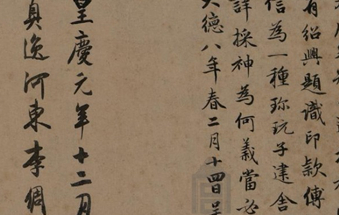 有紹興題識印款傳
信為一種珎玩子建舍
詳採神為何義當必
大德八年春二月十四日吴
皇慶元年十二月
真逸河東李倜